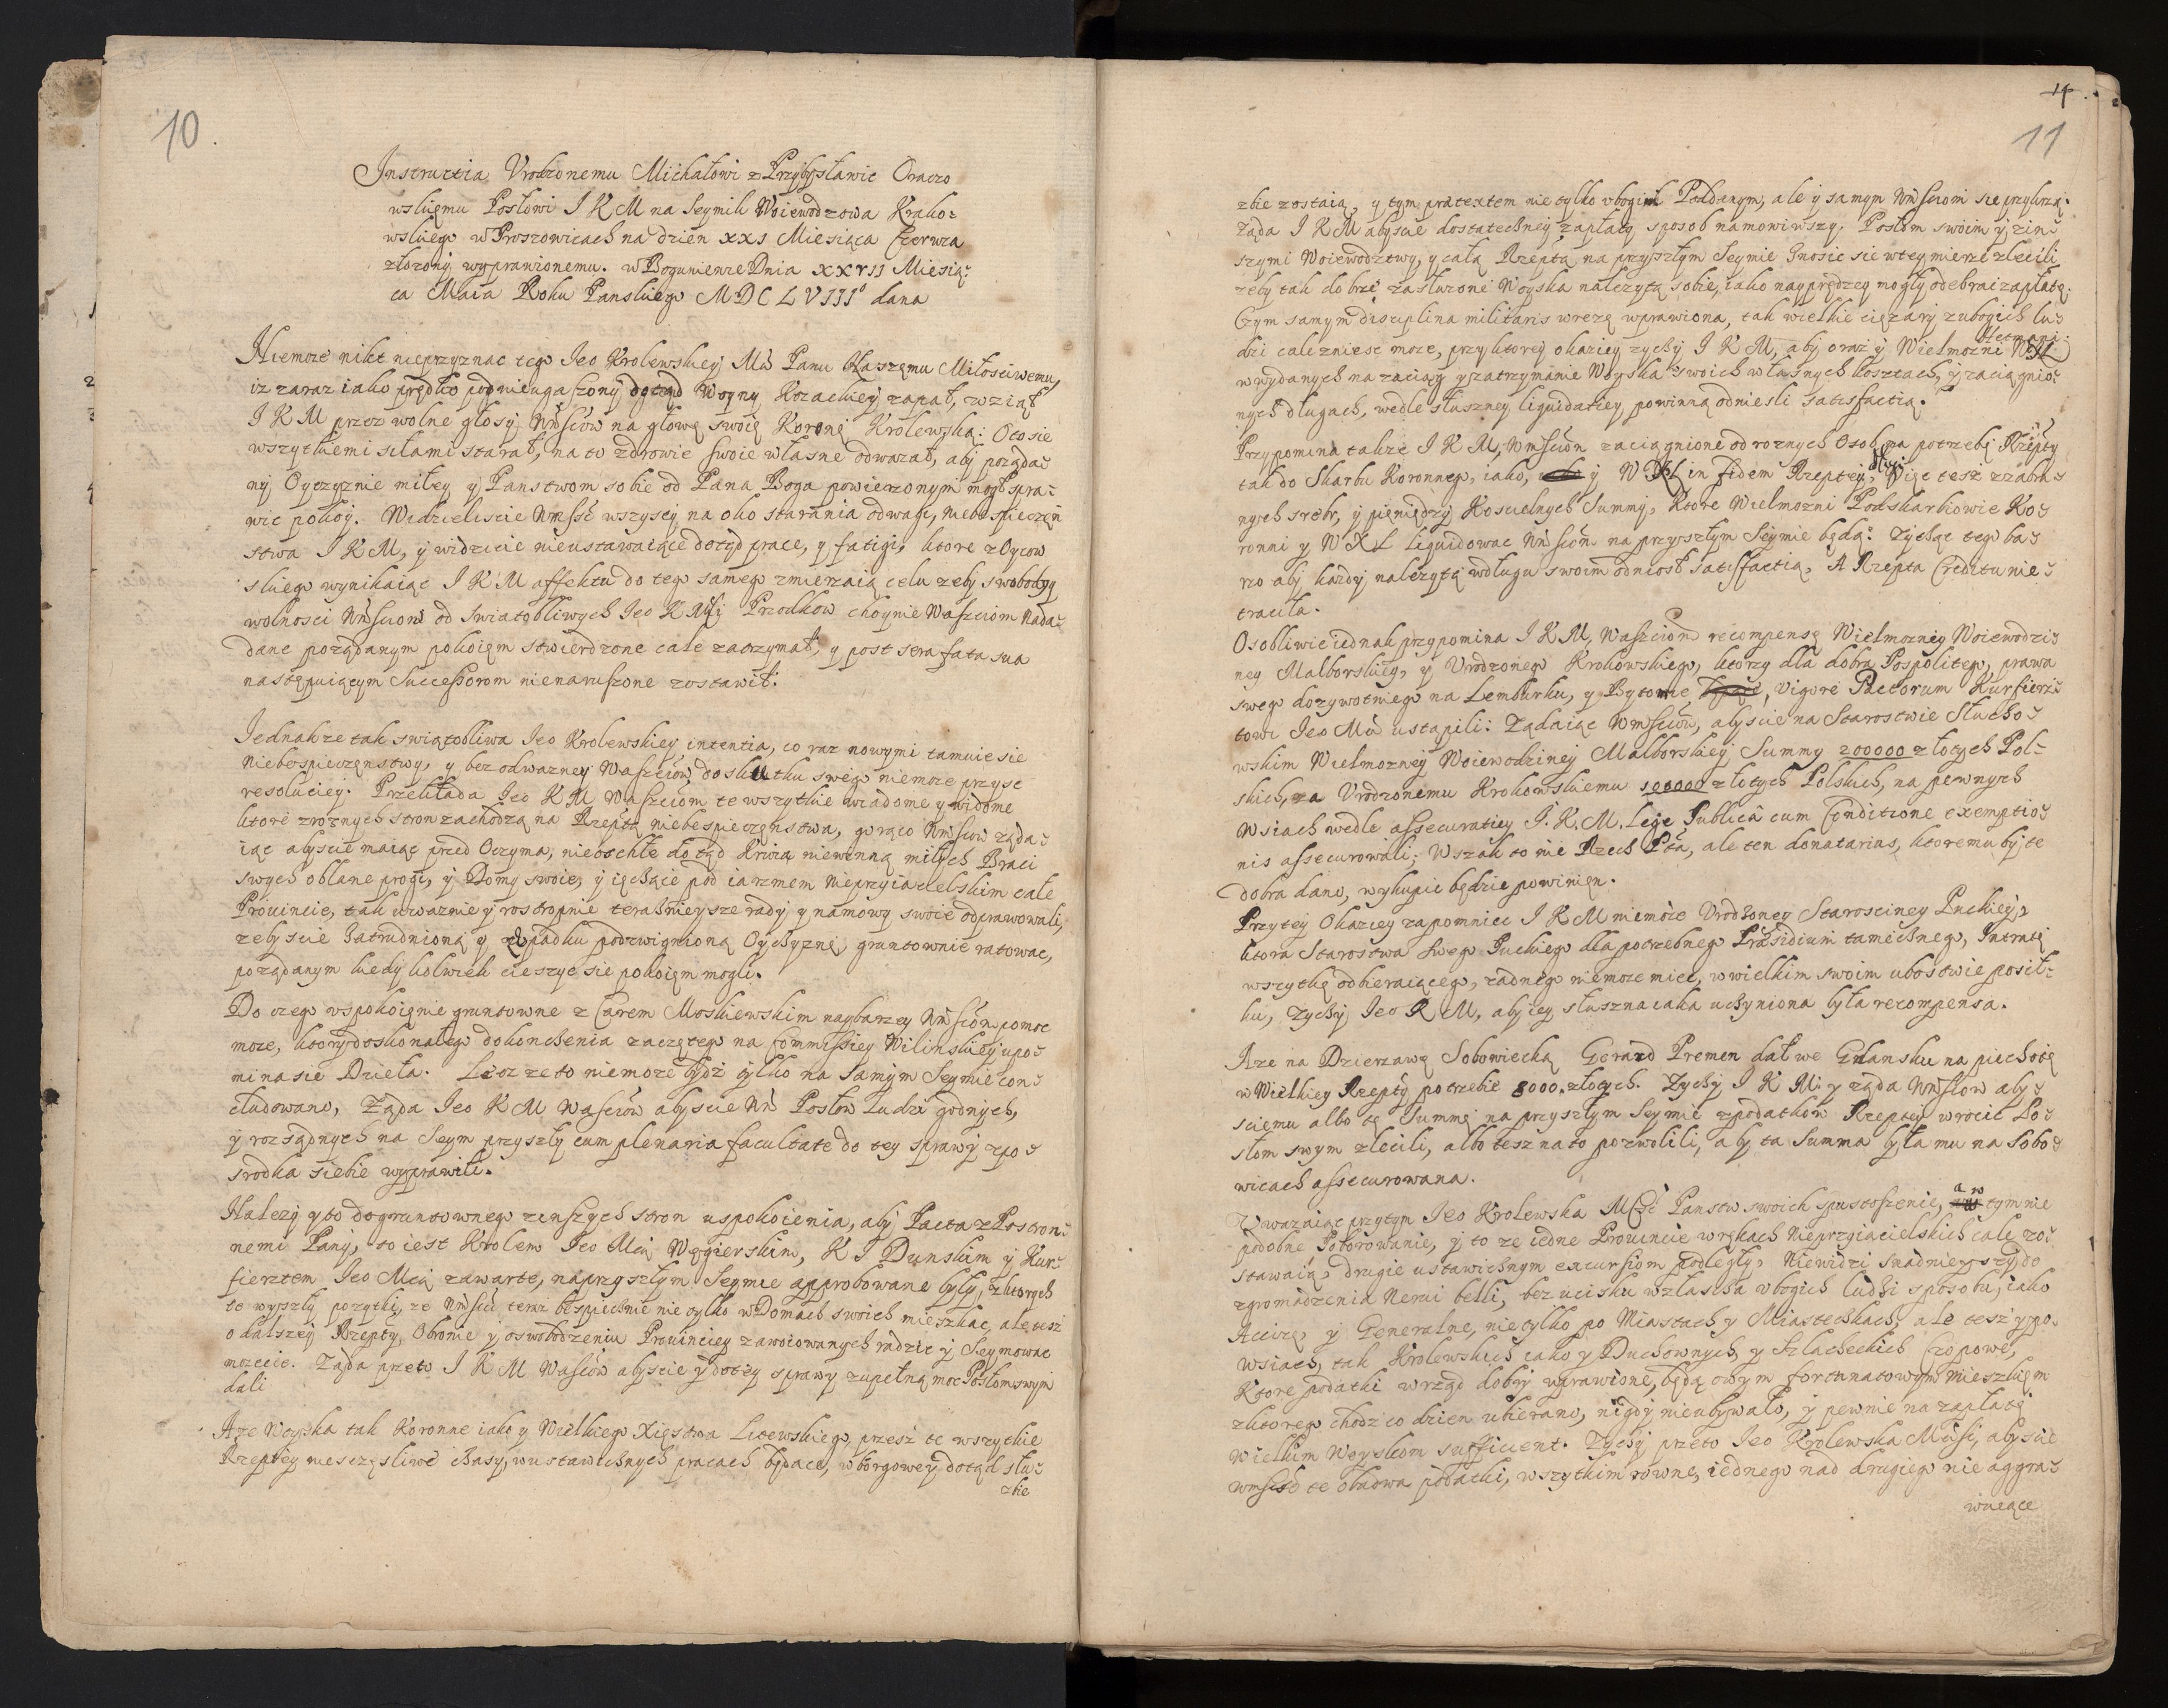 10.
Instructia Vrodzonemu Michałowi z Przybysławic Oraczo
wskięmu Posłowi J K M na Seymik Woiewodztwa Krako-
wskiego w Proszowicach na dzien XXI Miesiąca Czerwca
złozony wyprawionemu. w Dnia XXVII Miesią-
ca Maia Roku Panskiego MDCLVIII° dana
Niemoze nikt nieprzyznac tego Jeo Krolewskiey Mci Panu Naszęmu Miłosciwemu,
iz zaraz iako prędko pod nieugaszony dotąd Woyny Kozackiey zapał, wziął
J K M przez wolne głosy Wmsciow na głowę swoię Koronę Krolewską: Oto sie
wszytkiemi siłami starał, na to zdrowie swoie własne odwazał, aby pożąda-
ny Oyczyznie miłey y Panstwom sobie od Pana Boga powierzonym mogł spra-
wic pokoy. Widzieliscie Wmsc wszyscy na oko starania odwagi, niebespieczęn
stwa J K M, y widzicie nieustawaiące dotąd prace, y fatigi, ktore z Oycow
skiego wynikaiąc J K M affektu do tego samego zmierzaią celu zeby swobody y
wolnosci Wmsciom od swiatobliwych Jeo K Msci Przodkow choynie Waszciom Nada-
dane poządanym pokoięm stwierdzone cale zatrzymał, y post sera fata sua
nastęmpuiącym Successorom nienaruszone zostawił.
Jednakze tak swiątobliwa Jeo Krolewskiey intentia, co raz nowymi tamuie sie
niebespieczęnstwy, y bez odwazney Waszciow do skutku swego niemoze przysc
resolutiey. Przekłada Jeo K M Waszciom te wszytkie wiadome y widome
ktore z roznych stron zachodzą na Rzeptą niebespieczęnstwa, gorąco Wmsciow ząda-
iąc abyscie maiąc przed Oczyma, nieoschłe dotąd Krwią niewinną miłych Braci
swych oblane progi, y Domy swoie, y ięcżące pod iarzmem nieprzyiacielskim całe
Prouincie, tak uwaznie y rostropnie teraznieysze rady y namowy swoie odprawowali,
zebyscie zatrudnioną y z upadku podzwignioną Oyczyznę gruntownie ratowac,
poządanym kiedykolwiek cieszyc sie pokoięm mogli.
Do czego uspokoięnie gruntowne z Carem Moskiewskim naybarzey Wmsciom pomoc
moze, ktory doskonałego dokonczenia zaczętego na Commissiey Wilinskiey upo-
mina sie Dzieła. Lecz ze to niemoze bydz tylko na samym Seymie con-
cludowano, Ząda Jeo K M Wasciow abyscie Posłow Ludzi godnych,
y rozsądnych na Seym przyszły cum plenaria facultate do tey sprawy z po-
srodka siebie wyprawili.
Nalezy y to do gruntownego z stron uspokoienia, aby Pacta z Postron-
nemi Pany, to iest Krolem Jeo Mcią Węgierskim, K J Dunskim y Kur-
fierztem Jeo Mcią zawarte, na przyszłym Seymie approbowane były, z ktorych
te wyszły pozytki, ze Wmsc teraz bespiecznie nie tylko w Domach swoich mieszkac, ale tesz
o dalszey Rzepty Obronie y oswobodzeniu Prouinciey zawoiowanych radzic y Seymowac
mozecie. Ząda przeto J K M Wasciow abyscie y do tey sprawy zupełną moc Posłom swym
dali
A ze Woyska tak Koronne iako y Wielkiego Xięstwa Litewskiego, przesz te wszytkie
Rzeptey niesczęsliwe czasy, w ustawicznych pracach będące, w borgowey dotąd słu-
zbie
14
11
zbie zostaią, y tym praetextem nie tylko vbogim Poddanym, ale y samym Wmsciom sie przykrzą.
Ząda J K M abyscie dostateczney zapłaty sposob namowiwszy, Posłom swoim y z in-
szymi Woiewodztwy, y całą Rzeptą na przyszłym Seymie znosic sie w tey mierze zlecili
zeby tak dobrze zasłuzone Woyska nalezytą sobie, iako nayprędzey mogły odebrac zapłatę.
Czym samym disciplina militaris w rezę wprawiona, tak wielkie cięzary z ubogich lu-
dzi cale zniesc moze, przy ktorey okaziey zyczy J K M, aby oraz y Wielmozni Hetmani
w wydanych na zaciągi y zatrzymanie Woyska swoich własnych kosztach, y zaciągnio-
nych długach, wedle słuszney liquidatiey powinną odniesli satisfactią.
Przypomina takze J K M, Wmsciom zaciągnione od roznych Osob na potrzeby Rzepty
tak do Skarbu Koronnego, iako, y W X L in fidem Rzeptey długi, Więc tesz zabra-
nych srebr, y pięniędzy Koscielnych Summy, Ktore Wielmozni Podskarbiowie Ko-
ronni y W X L liquidowac Wmsciom na przyszłym Seymie będą: Zycząc tego ba-
rzo aby kazdy nalezytą w długu swoim odniosł satisfactią, A Rzepta Creditu nie-
traciła.
Osobliwie iednak przypomina J K M, Waszciom recompensę Wielmozney Woiewodzi-
ney Malborskiey, y Vrodzonego Krokowskiego, ktorzy dla dobra Pospolitego, prawa
swego dozywotniego na Lemburku, y Bytowie, vigore Pactorum Kurfierz-
towi Jeo Mci ustąpili: Ządaiąc Wmsciow, abyscie na Starostwie Słucho-
wskim Wielmozney Woiewodziney Malborskiey Summy 200000 złotych Pol-
skich, za Vrodzonemu Krokowskiemu 100000 złotych Polskich, na pewnych
Wsiach wedle assecuratiey J. K. M. Lege Publica cum Conditione exemptio-
nis assecurowali; Wszak to nie Rzecz Pta, ale ten donatarius, ktoremu by te
dobra dano, wykupic będzie powinięn.
Przy tey Okaziey zapomniec J K M niemoze Vrodzoney Starosciney Puckiey,
ktora Starostwa swego Puckiego dla potrzebnego Praesidium tamecznego, Intratę
wszytkę odbieraiącego, zadnego niemoze miec, w wielkim swoim ubostwie posił-
ku, Zyczy Jeo K M, aby iey słuszna iaka uczyniona była recompensa.
A ze na Dzierzawę Sobowiecką Gerard Premen dał we Gdansku na piechotę
w Wielkiey Rzepty potrzebie 8000. złotych. Zyczy J K M y ząda Wmsciow aby-
sciemu albo tę Summę na przyszłym Seymie z podatkow Rzeptey wrocic Po-
słom swym zlecili, albo tesz na to pozwolili, aby ta Summa była mu na Sobo-
wicach assecurowana.
Vwazaiąc przytym Jeo Krolewska Mśc Panstw swoich spustoszenie, a w tym nie
podobne Poborowanie, y to ze iedne Prouincie w rękach Nieprzyiacielskich cale zo-
stawaią, drugie ustawicznym excursiom podległy, Niewidzi snadnieyszy do
zgromadzenia nerui belli, bez ucisku wzlascza vbogich ludzi sposobu, iako
Accizę, y Generalne, nie tylko po Miastach y Miasteczkach, ale tesz y po
wsiach, tak Krolewskich iako y Duchownych, y Szlacheckich Czopowe,
Ktore podatki w rząd dobry wprawione, będą owym fortunatowym mieszkięm
z ktorego chodz co dzien ubierano, nigdy nieubywało, y pewnie na zapłatę
Wielkim Woyskom sufficient. Zyczy przeto Jeo Krolewska Mśc, abyscie
te obadwa podatki, wszytkim rowne, iednego nad drugiego nie aggra-
wuiące